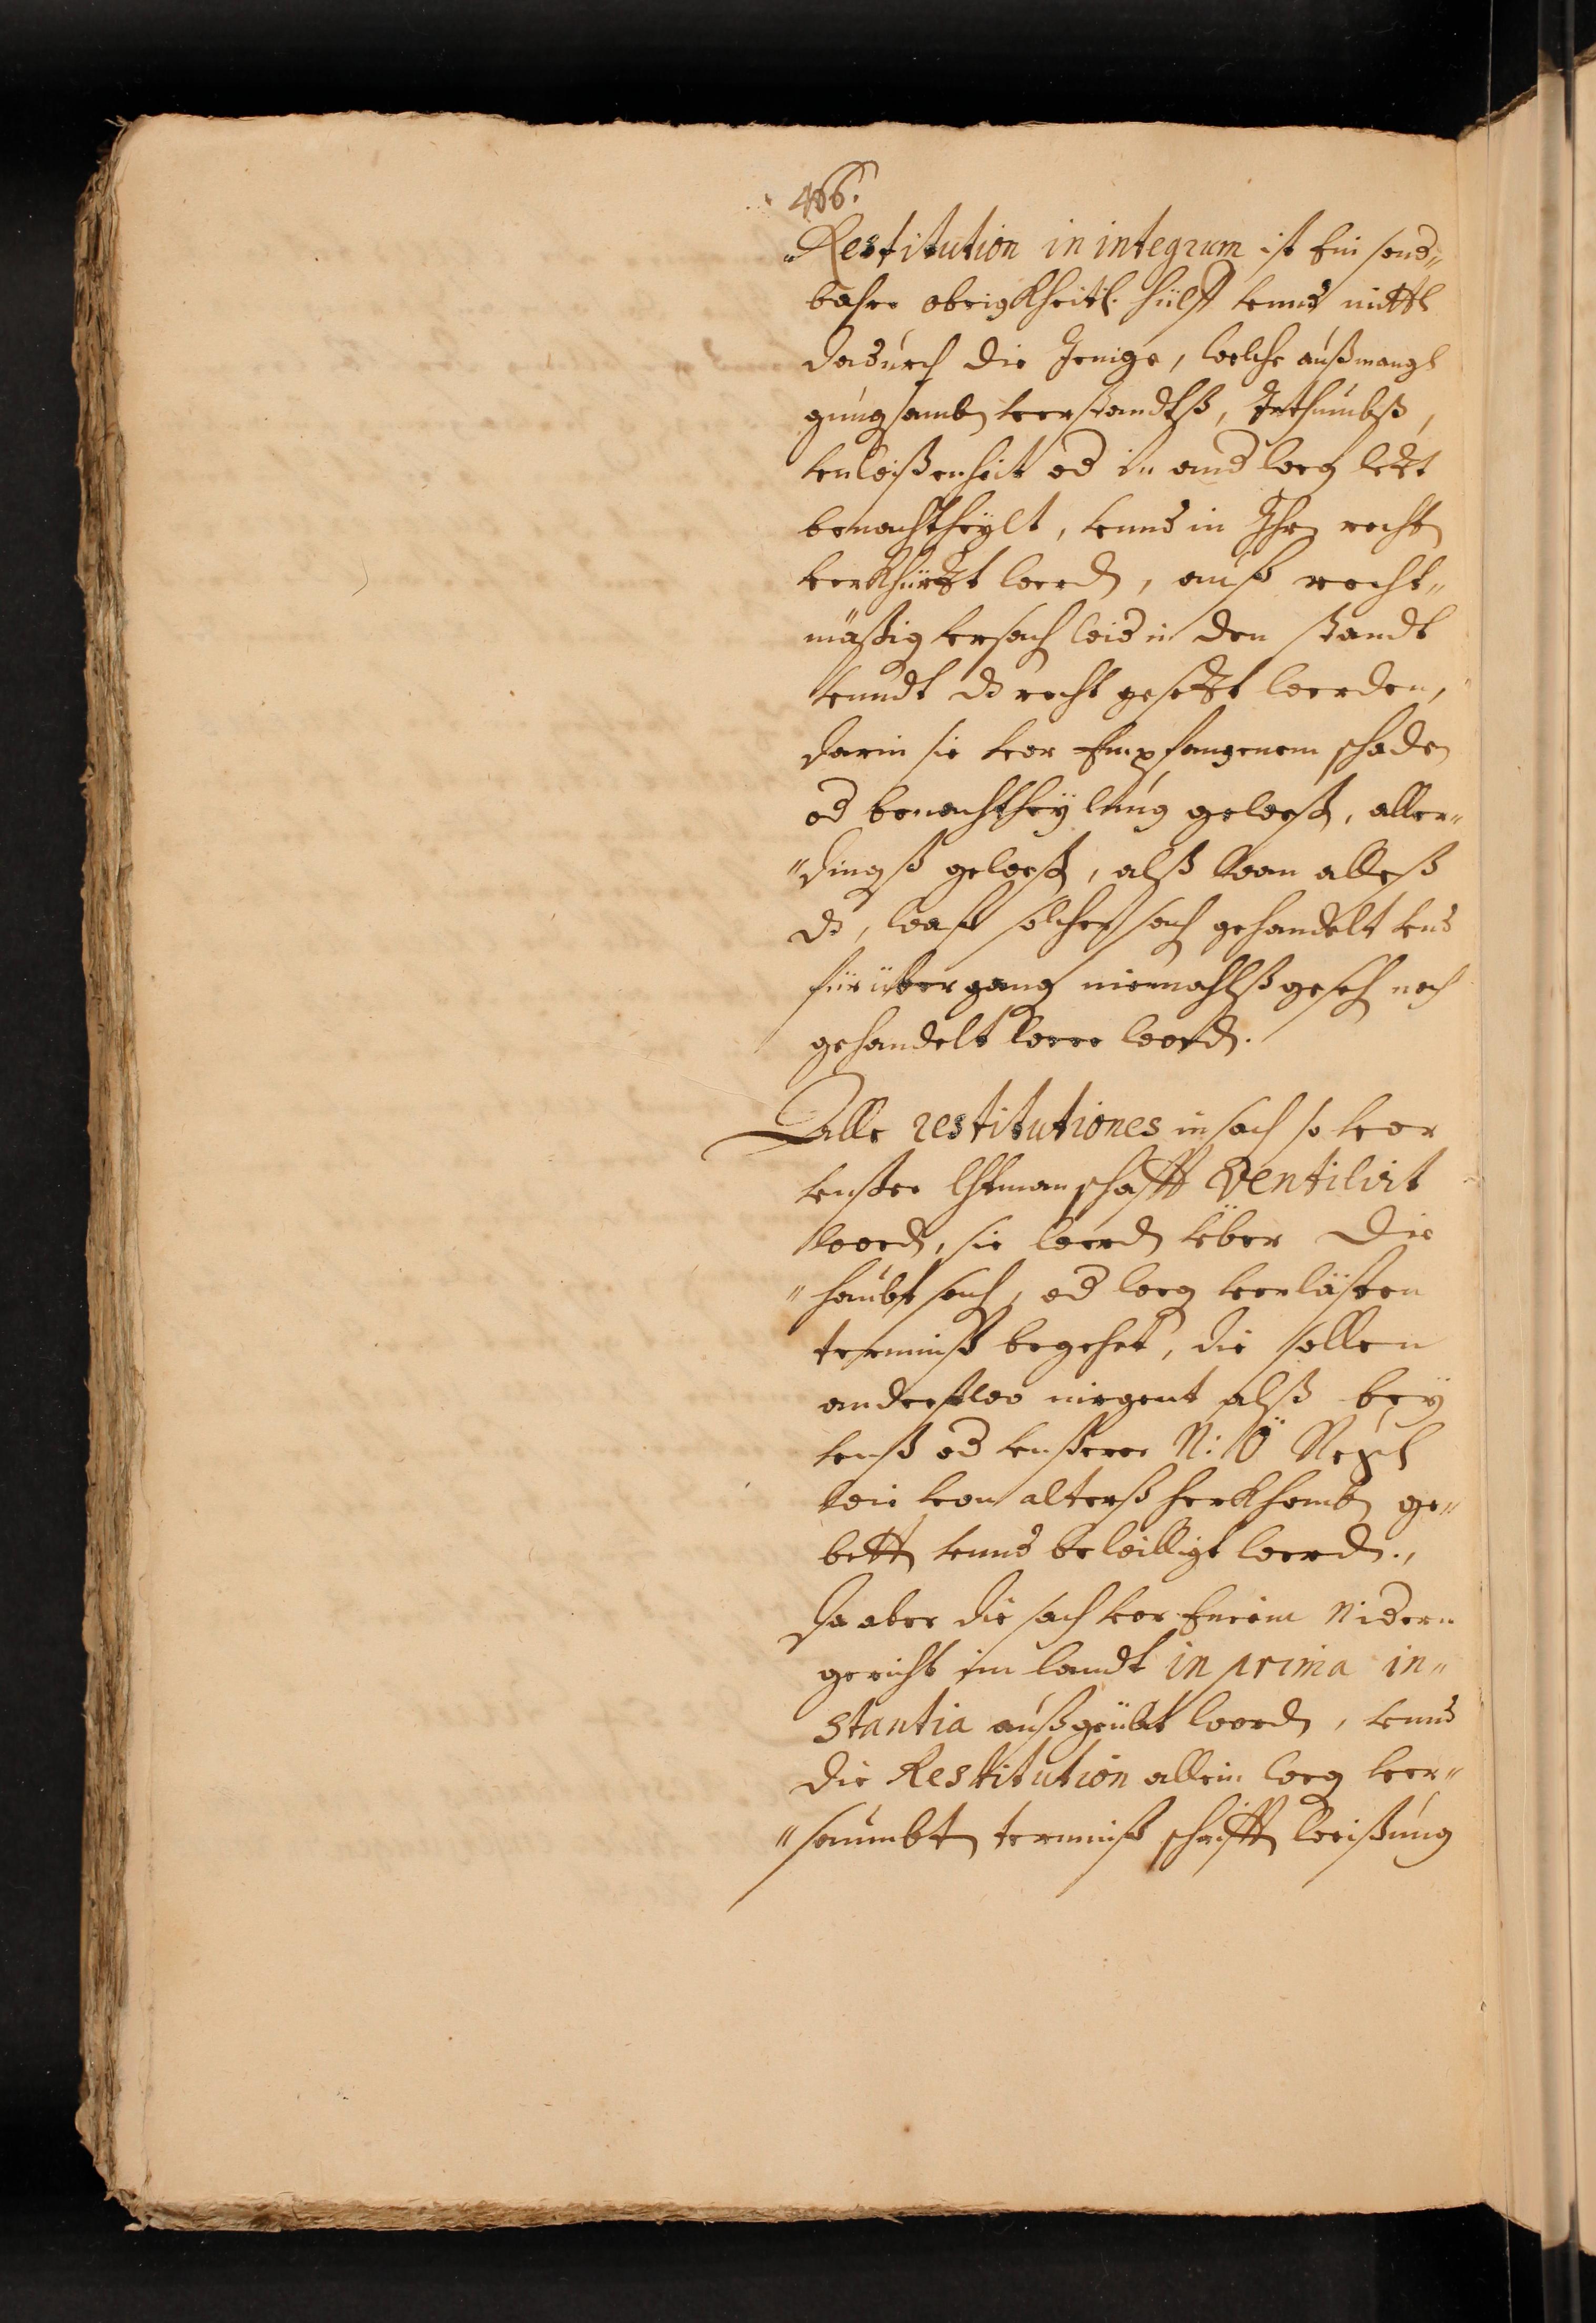 466.
Restitution in integrum ist Ein sond„
bahre obrigkheitl: hülff vnnd mittl
dadurch die Jenige, welche auß mangl
gnugsamb verstandtß, Irthumbß,
vnwißenheit od in and weg letzt
benachtheylt, vnnd in Ihr recht
verkhürtzt werd, auß recht„
mäßig vrsach wid in den standt
vnndt d recht gesetzt werden,
darin sie vor Empfangenem schaden
od benachtheylung gewest, aller„
„dingß gewest, alß wan alleß
d, waß solcher sach gehandelt vnd
fürübergang niemahlß gesch noch
gehandelt were word.
Alle restitutiones in sach so vor
vnßer  Ventilirt
word, sie werd über die
„haubt sach, od weg verläßten
terminß begehrt, die sollen
anderstwo nirgent alß bey
vnß od vnßerer N: Ö
wie von alterß herkhomb ge„
bett vnnd bewilligt werd.,
Da aber die sach vor Einem Nidern
gericht im landt in prima in„
stantia außgeübt word, vnnd
die Restitution allein weg ver„
„saumbt terminß schrifft weißung